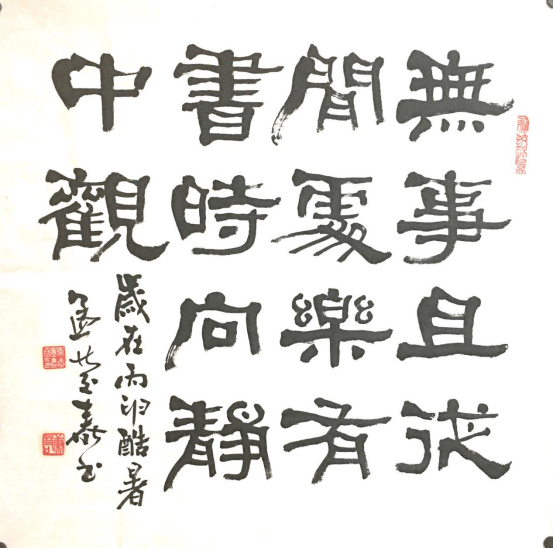 無事且從
閒處樂有
書時向靜
中觀
歲在丙申酷暑
孟慶嘉書